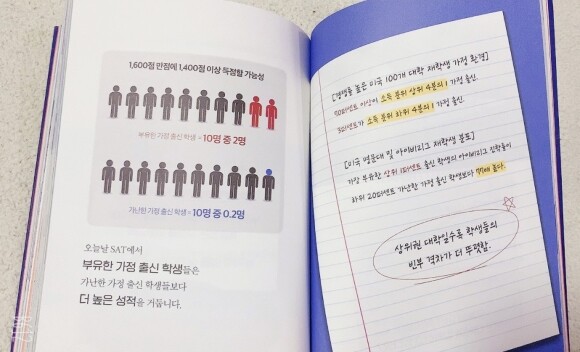 1,600점 만점에 1,400점 이상 득점할 가능성
부유한 가정 출신 학생 = 10명 중 2명
가난한 가정 출신 학생 = 10명 중 0.2명
오늘날 SAT에서
부유한 가정 출신 학생들은
가난한 가정 출신 학생들보다
더 높은 성적을 거둡니다.
[경쟁률 높은 미국 100개 대학 재학생 가정 환경]
70퍼센트 이상이 소득 분위 상위 4분의 1 가정 출신.
3퍼센트가 소득 분위 하위 4분의 1 가정 출신.
[미국 명문대 및 아이비리그 재학생 분포]
가장 부유한 상위 1퍼센트 출신 학생의 아이비리그 진학률이
하위 20퍼센트 가난한 가정 출신 학생보다 77배 높다.
상위권 대학일수록 학생들의
빈부 격차가 더 뚜렷함.